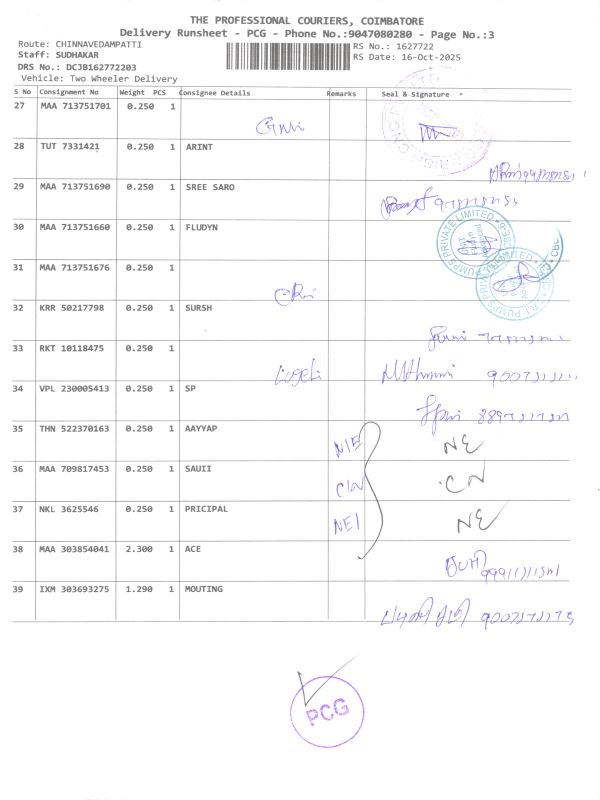 THE PROFESSIONAL COURIERS, COIMBATORE
Delivery Runsheet - PCG - Phone No.:9047080280 - Page No.:3
Route: CHINNAVEDAMPATTI
RS No.: 1627722
Staff: SUDHAKAR
RS Date: 16-Oct-2025
DRS No.: DCJB162772203
Vehicle: Two Wheeler Delivery
S No Consignment No Weight PCS Consignee Details Remarks Seal & Signature
27 MAA 713751701 0.250 1
28 TUT 7331421 0.250 1 ARINT
29 MAA 713751690 0.250 1 SREE SARO
30 MAA 713751660 0.250 1 FLUDYN
PUMPS PRIVATE LIMITED
31 MAA 713751676 0.250 1
32 KRR 50217798 0.250 1 SURSH
33 RKT 10118475 0.250 1
34 VPL 230005413 0.250 1 SP
35 THN 522370163 0.250 1 AAYYAP NE
36 MAA 709817453 0.250 1 SAUII CN
37 NKL 3625546 0.250 1 PRICIPAL NE
38 MAA 303854041 2.300 1 ACE
39 IXM 303693275 1.290 1 MOUTING
PCG